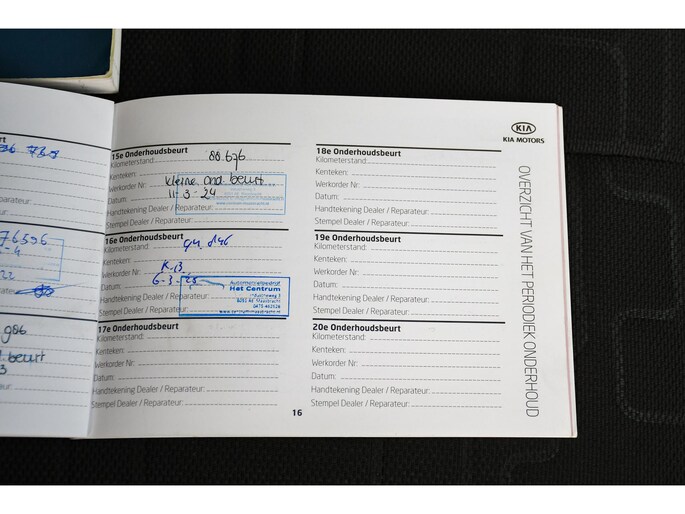 KIA
KIA MOTORS
OVERZICHT VAN HET PERIODIEK ONDERHOUD
76596
g06
beurt
15e Onderhoudsbeurt
Kilometerstand: 88.676
Kenteken:
Werkorder Nr: kleine ond. beurt
Datum: 11-3-24
Handtekening Dealer / Reparateur:
Stempel Dealer / Reparateur:
16e Onderhoudsbeurt
Kilometerstand:
Kenteken:
Werkorder Nr: K.B.
Datum: 6-3-25
Autobedrijf
Het Centrum
Industrieweg
Maasbracht
Handtekening Dealer / Reparateur:
Stempel Dealer / Reparateur:
17e Onderhoudsbeurt
Kilometerstand:
Kenteken:
Werkorder Nr:
Datum:
Handtekening Dealer / Reparateur:
Stempel Dealer / Reparateur:
18e Onderhoudsbeurt
Kilometerstand:
Kenteken:
Werkorder Nr:
Datum:
Handtekening Dealer / Reparateur:
Stempel Dealer / Reparateur:
19e Onderhoudsbeurt
Kilometerstand:
Kenteken:
Werkorder Nr:
Datum:
Handtekening Dealer / Reparateur:
Stempel Dealer / Reparateur:
20e Onderhoudsbeurt
Kilometerstand:
Kenteken:
Werkorder Nr:
Datum:
Handtekening Dealer / Reparateur:
Stempel Dealer / Reparateur:
16